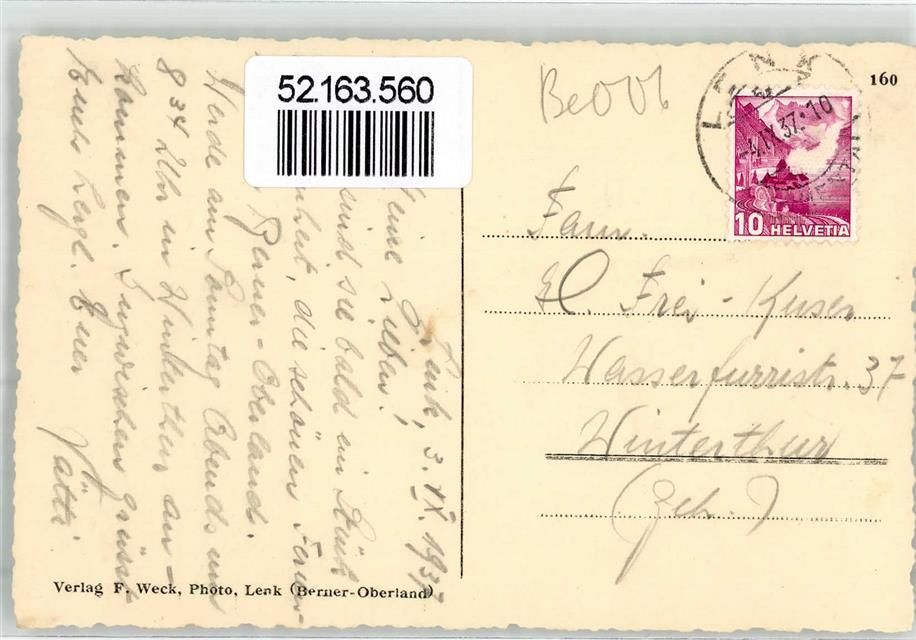 52.163.560
BeOOb
160
LENK
-4.IX.37.-10
10 HELVETIA
Lenk, 3. IX. 1937
Meine Lieben!
sind sie bald ein Stück
die schönen Ferien
Berner-Oberland.
Werde am Sonntag Abends um
8 34 Uhr in Winterthur an-
kommen. Inzwischen grüsst
Euch Euer
Vatti
Fam.
Frei-Kuser
Wasserfurristr. 37
Winterthur
(Zch.)
Verlag F. Weck, Photo, Lenk (Berner-Oberland)